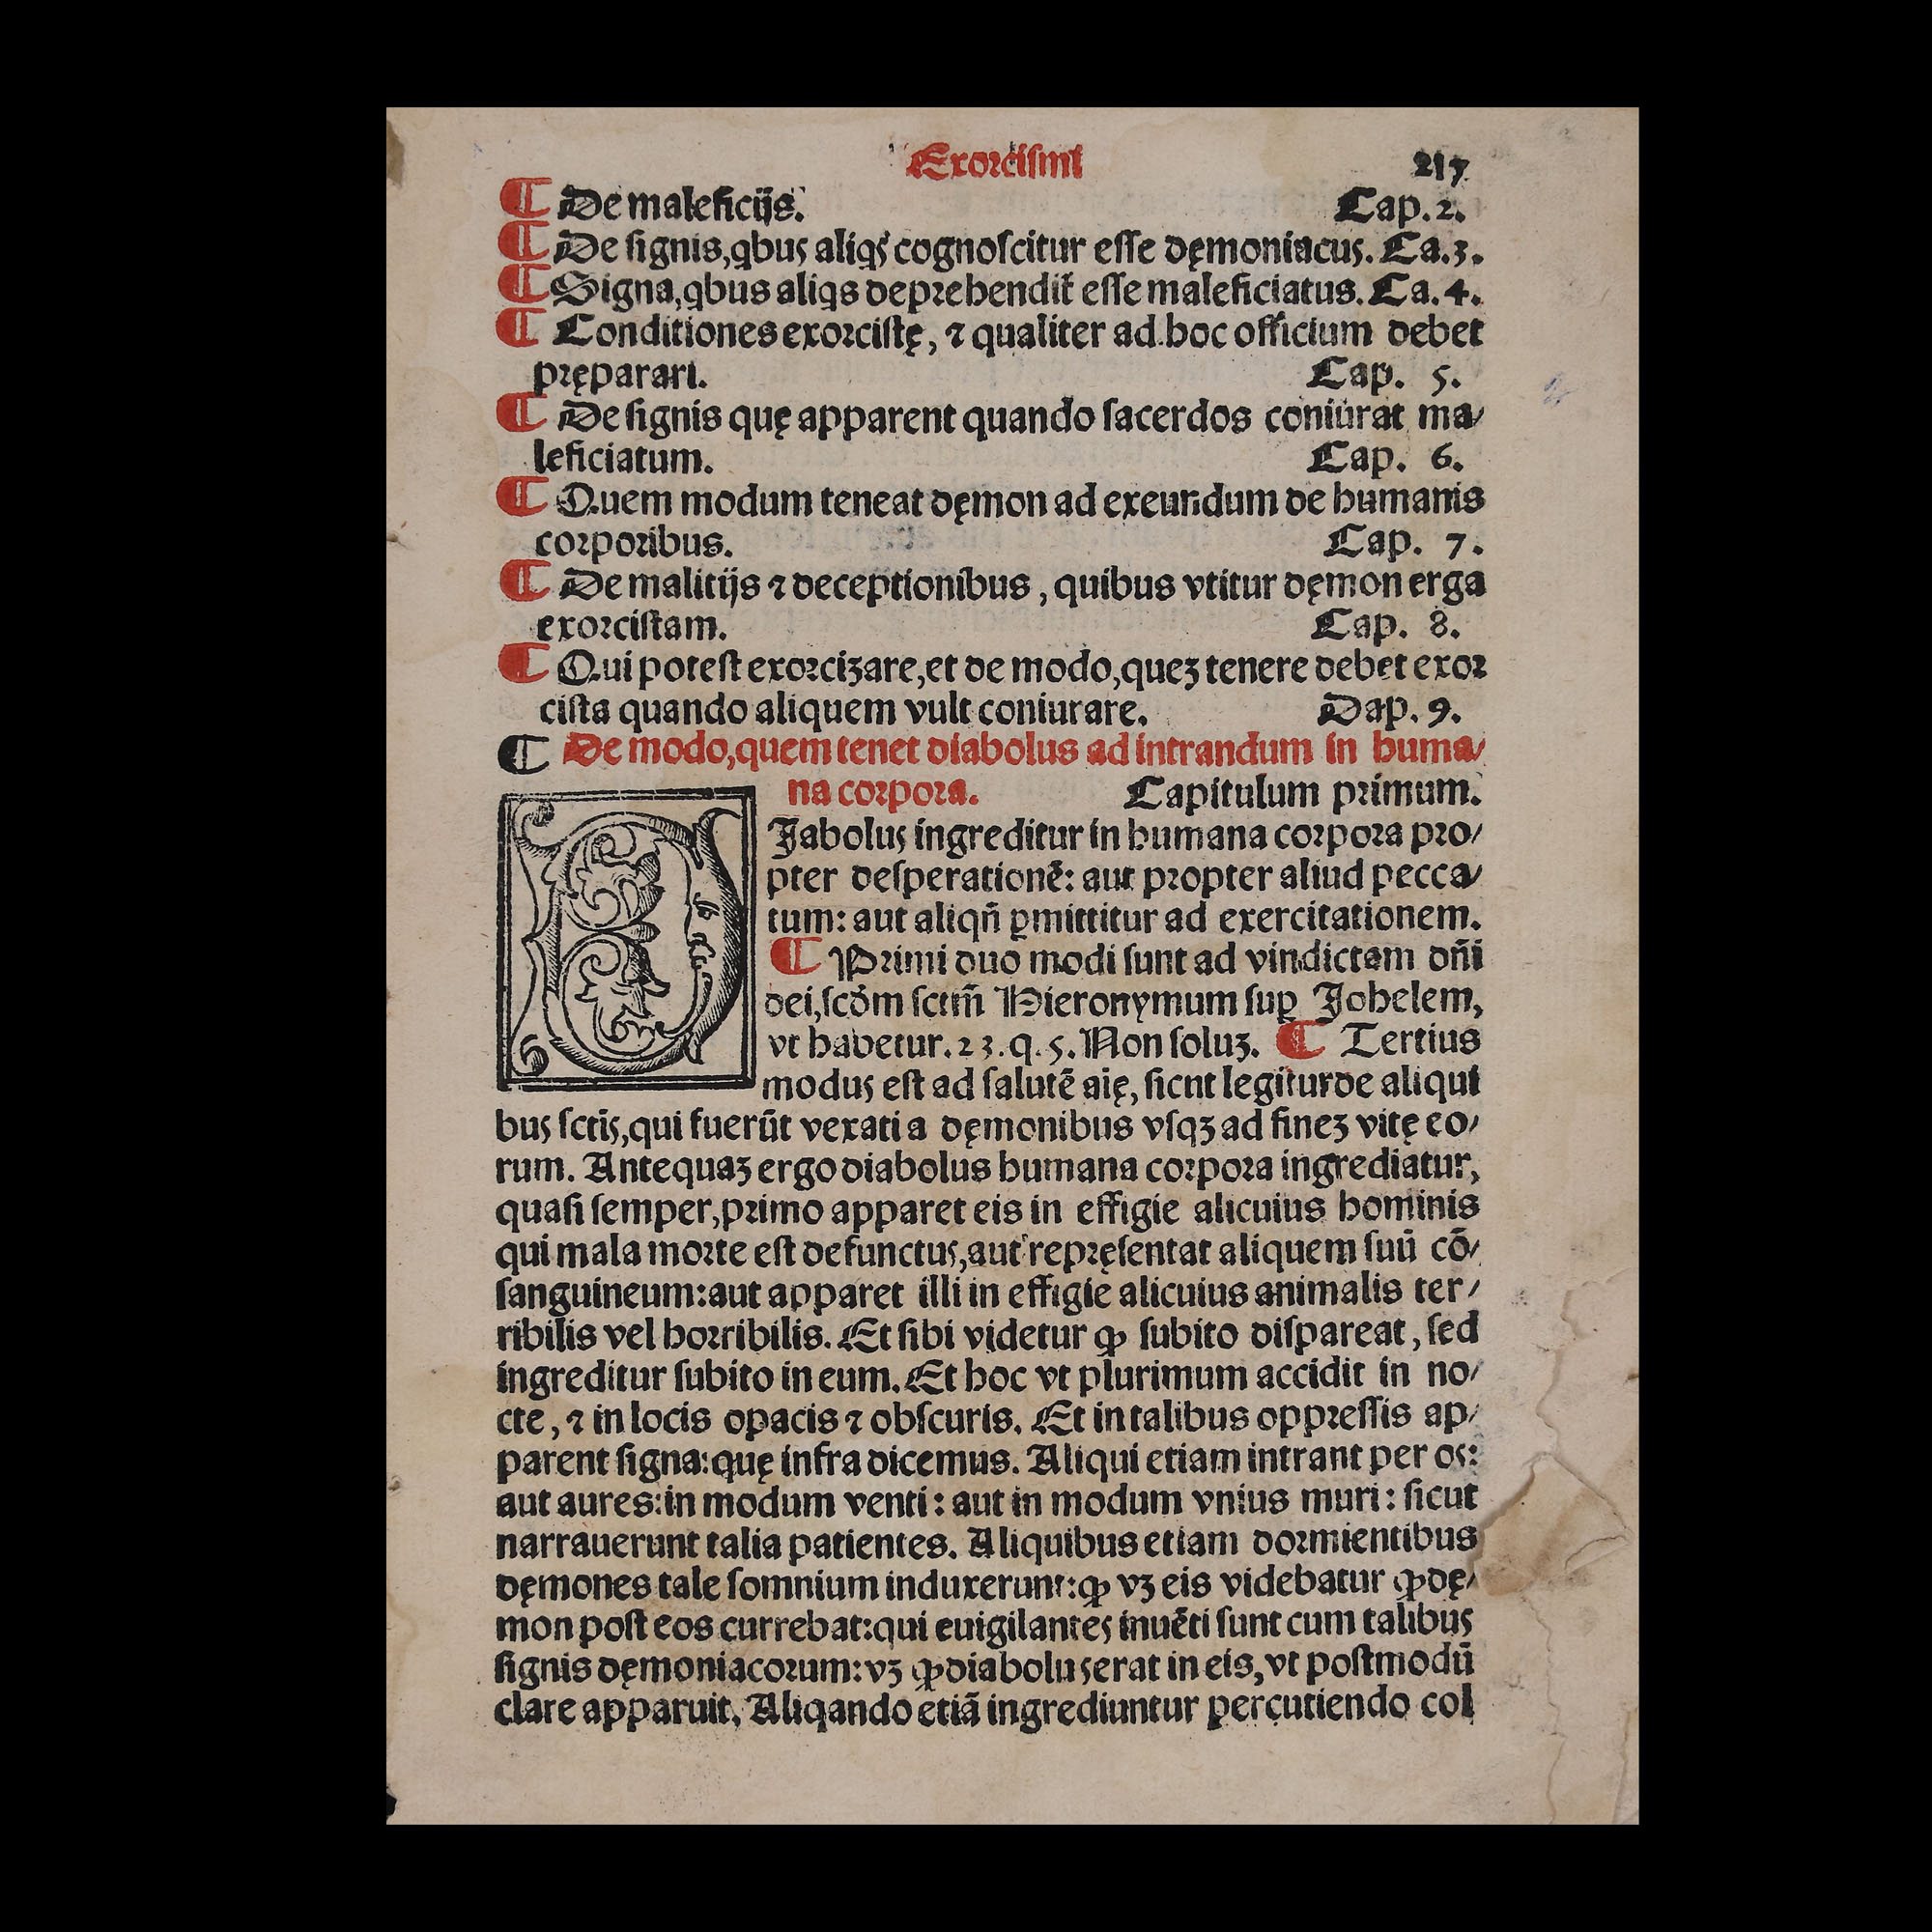 Exorcismi 217
¶ De maleficijs. Cap. 2.
¶ De signis, qbus aliqs cognoscitur esse dęmoniacus. Ca. 3.
¶ Signa, qbus aliqs deprehendit̃ esse maleficiatus. Ca. 4.
¶ Conditiones exorcistę, ⁊ qualiter ad hoc officium debet
pręparari. Cap. 5.
¶ De signis quę apparent quando sacerdos coniurat ma/
leficiatum. Cap. 6.
¶ Quem modum teneat dęmon ad exeundum de humanis
corporibus. Cap. 7.
¶ De malitijs ⁊ deceptionibus, quibus vtitur dęmon erga
exorcistam. Cap. 8.
¶ Qui potest exorcizare, et de modo, quez tenere debet exor
cista quando aliquem vult coniurare. Dap. 9.
¶ De modo, quem tenet diabolus ad intrandum in huma/
na corpora. Capitulum primum.
DIabolus ingreditur in humana corpora pro/
pter desperationē: aut propter aliud pecca/
tum: aut aliqñ ꝑmittitur ad exercitationem.
¶ Primi duo modi sunt ad vindictam dñi
dei, scḋm sctm̃ Hieronymum suꝑ Johelem,
vt habetur. 23. q. 5. Non soluz. ¶ Tertius
modus est ad salutē aię, sicnt legitur de aliqui
bus sctis̃, qui fuerūt vexati a dęmonibus vsqz ad finez vitę eo/
rum. Antequaz ergo diabolus humana corpora ingrediatur,
quasi semper, primo apparet eis in effigie alicuius hominis
qui mala morte est defunctus, aut repręsentat aliquem suū cō/
sanguineum: aut apparet illi in effigie alicuius animalis ter/
ribilis vel horribilis. Et sibi videtur ꝙ subito dispareat, sed
ingreditur subito in eum. Et hoc vt plurimum accidit in no/
cte, ⁊ in locis opacis ⁊ obscuris. Et in talibus oppressis ap/
parent signa: quę infra dicemus. Aliqui etiam intrant per os:
aut aures: in modum venti: aut in modum vnius muri: sicut
narrauerunt talia patientes. Aliquibus etiam dormientibus
dęmones tale somnium induxerunt: ꝙ vz eis videbatur ꝙ dę/
mon post eos currebat: qui euigilantes inuēti sunt cum talibus
signis dęmoniacorum: vz ꝙ diabolus erat in eis, vt postmodū
clare apparuit. Aliqando etiā ingrediuntur percutiendo col